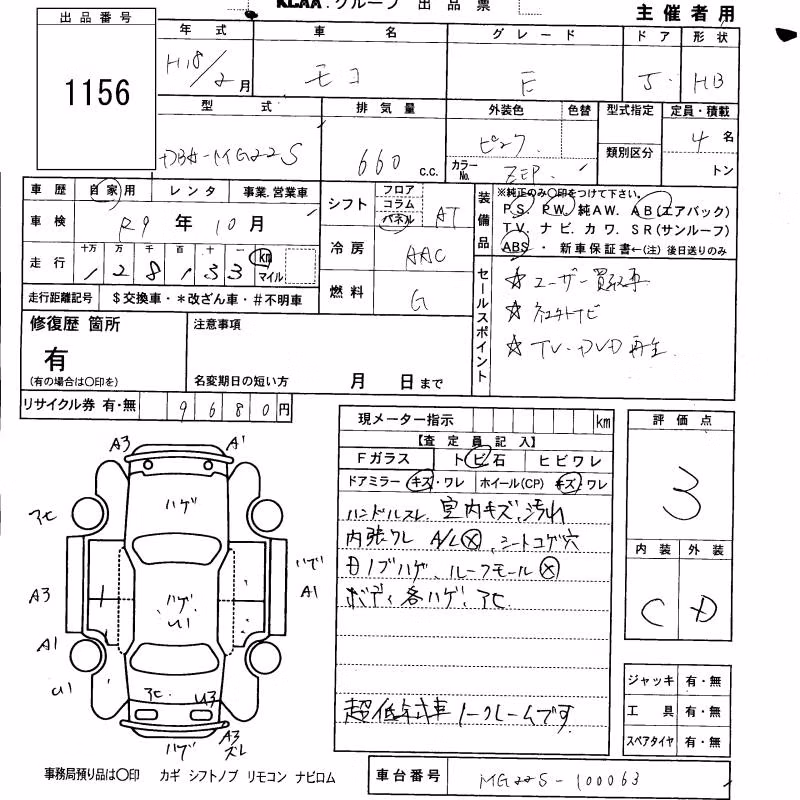 KCAA.グループ 出品票
主催者用
出品番号
1156
年式 車名 グレード ドア 形状
H18/2月 モコ E 5 HB
型式 排気量 外装色 色替 型式指定 定員・積載
DBA-MG22S 660 c.c. ピンク 類別区分 4名
カラーNo. ZEP トン
車歴 自家用 レンタ 事業.営業車
車検 R9年10月
走行 十万 万 千 百 十 km マイル
128133
走行距離記号 $交換車・*改ざん車・#不明車
シフト フロア コラム パネル AT
冷房 AAC
燃料 G
装備品 ※純正のみ〇印をつけて下さい。
PS. PW. 純AW. AB(エアバック)
TV. ナビ. カワ. SR(サンルーフ)
ABS・新車保証書←(注)後日送りのみ
セールスポイント
☆ユーザー買取車
☆社外ナビ
☆TV・DVD再生
修復歴 箇所
有
(有の場合は〇印を)
注意事項
名変期日の短い方 月 日まで
リサイクル券 有・無 9680円
現メーター指示 km
【査定員記入】
Fガラス トビ石 ヒビワレ
ドアミラー キズ・ワレ ホイール(CP) キズ・ワレ
ハンドルスレ. 室内キズ、汚れ
内張ワレ A/L✕、シートコゲ穴
ルーフモール✕
ボディ各ハゲ、アセ
超低年式車ノークレームです
評価点
3
内装 外装
C D
ジャッキ 有・無
工具 有・無
スペアタイヤ 有・無
A3 A1
ハゲ
アセ
A3 ハゲ U1 ハゲ A1
A1
U1 アセ U3
ハゲ A3 ズレ
事務局預り品は〇印 カギ シフトノブ リモコン ナビロム
車台番号 MG22S-100063